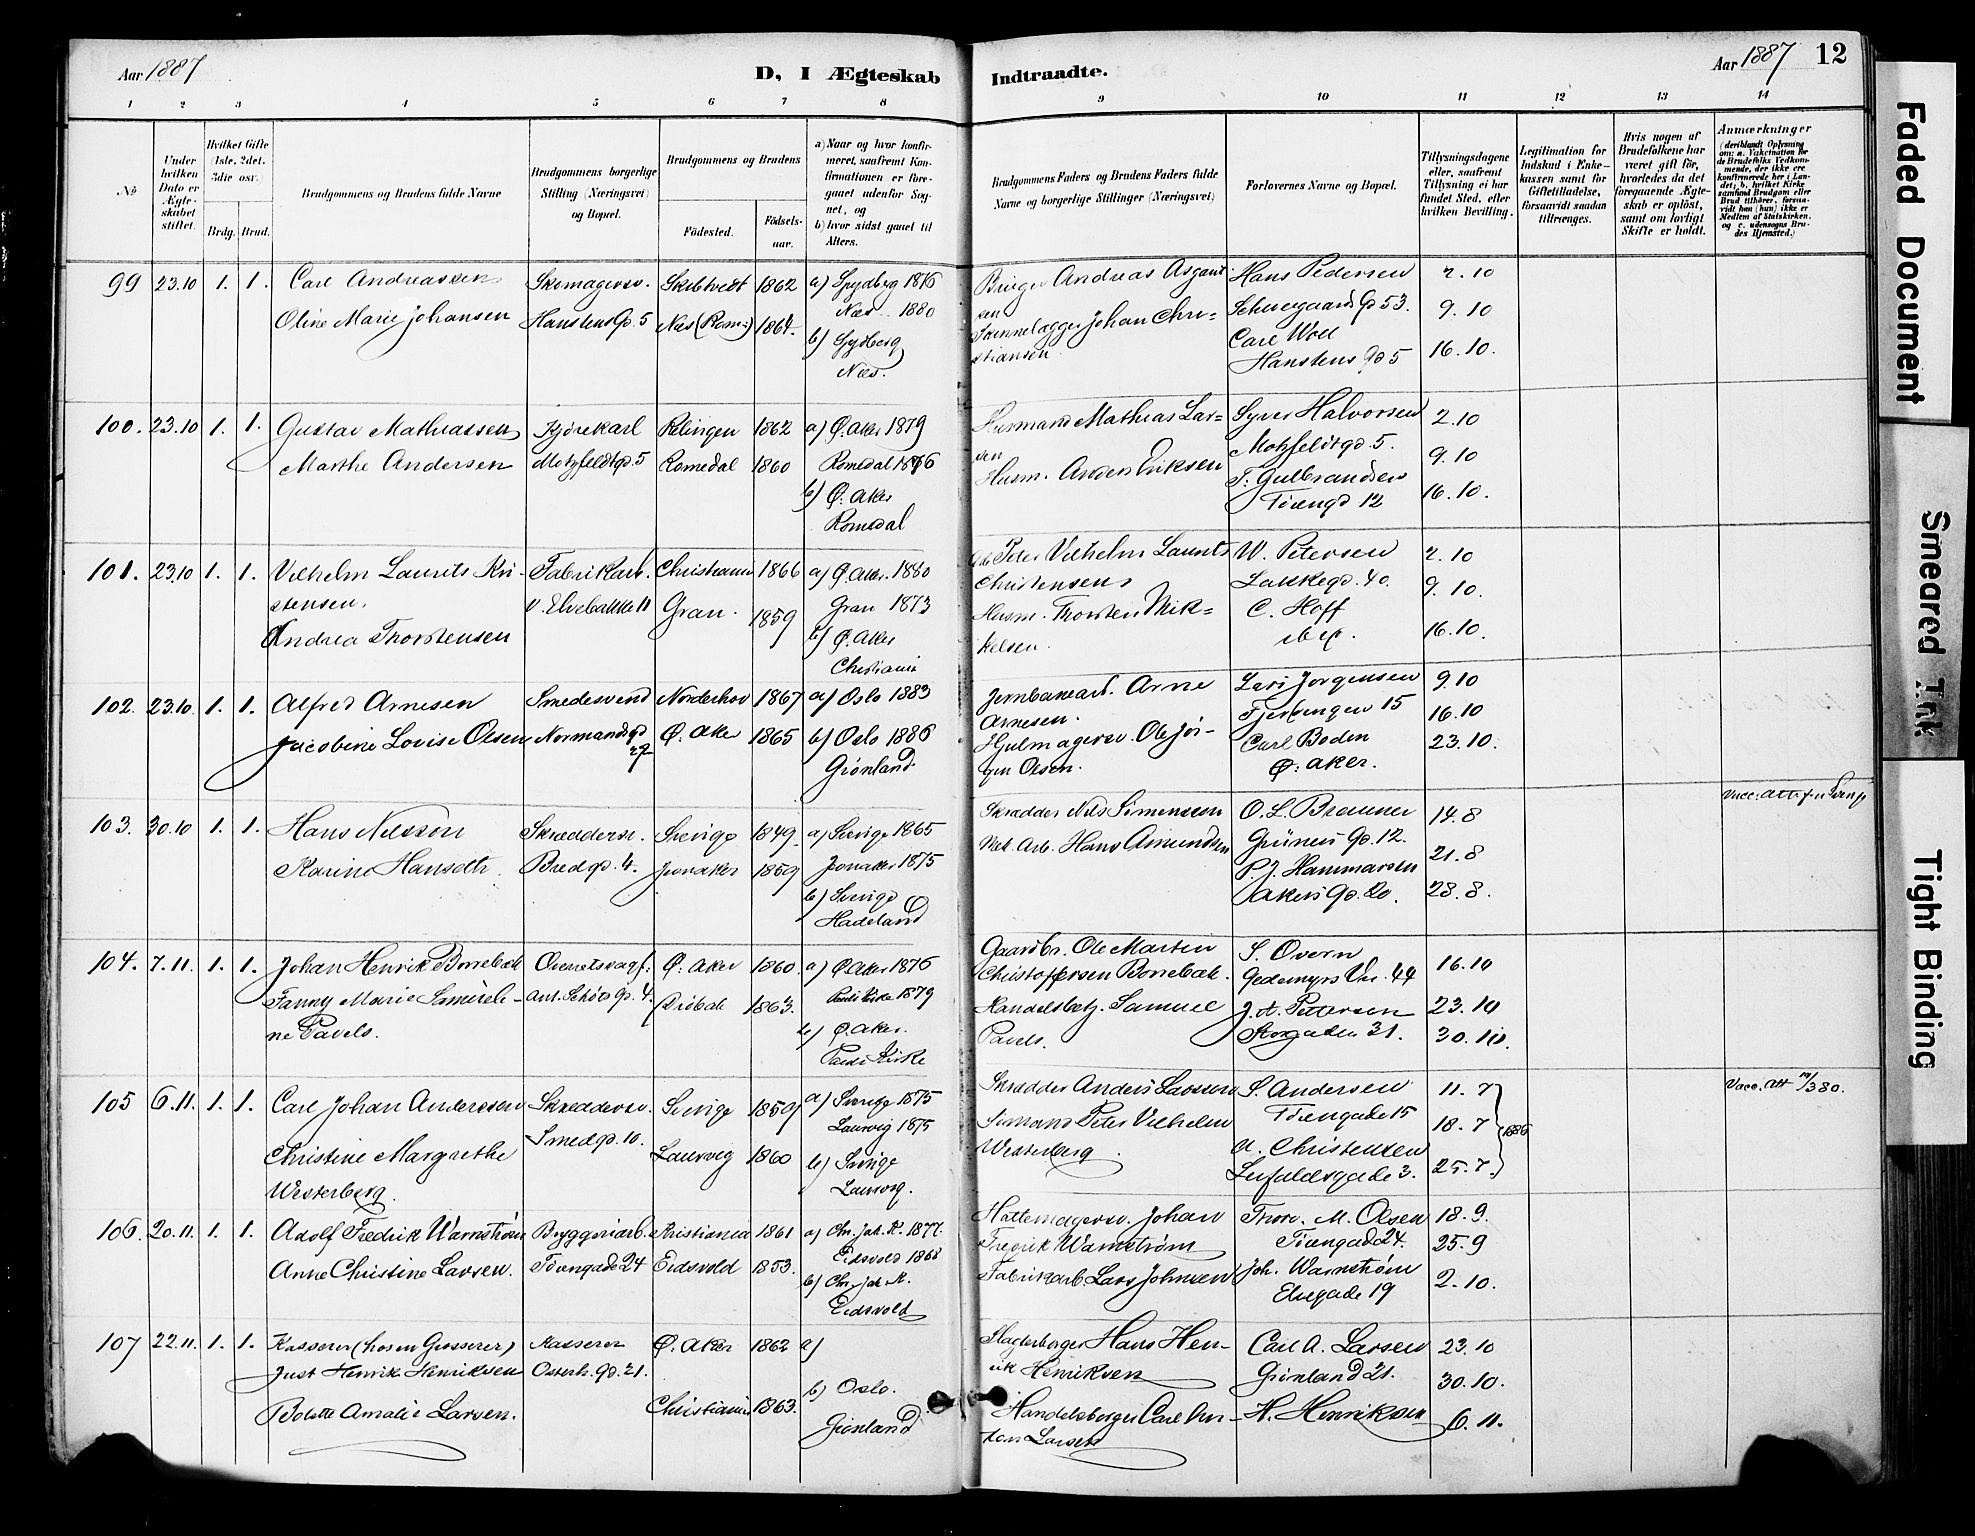 Aar 1887
D, I Ægteskab
Indtraadte.
Aar 1887 12
1 2 3 4 5 6 7 8
9 10 11 12 13 14
No
Under hvilken Dato er Ægteskabet stiftet.
Hvilket Gifte (1ste, 2det, 3die osv.)
Brdg. Brud.
Brudgommens og Brudens fulde Navne
Brudgommens borgerlige Stilling (Næringsvei) og Bopæl.
Brudgommens og Brudens
Födested.
Födsels-aar.
a) Naar og hvor konfirmeret, saafremt Konfirmationen er foregaaet udenfor Sognet, og
b) hvor sidst gaaet til Alters.
Brudgommens Faders og Brudens Faders fulde Navne og borgerlige Stillinger (Næringsvei)
Forlovernes Navne og Bopæl.
Tillysningsdagene eller, saafremt Tillysning ei har fundet Sted, efter hvilken Bevilling.
Legitimation for Indskud i Enkekassen samt for Giftetilladelse, forsaavidt saadan tiltrænges.
Hvis nogen af Brudefolkene har været gift för, hvorledes da det foregaaende Ægteskab er oplöst, samt om lovligt Skifte er holdt.
Anmærkninger
(deriblandt Oplysning om: a. Vakcination for de Brudefolks Vedkommende, der ikke ere konfirmerede her i Landet; b. hvilket Kirkesamfund Brudgom eller Brud tilhörer, forsaavidt han (hun) ikke er Medlem af Statskirken, og c. udensogns Brudes Hjemsted.)
99 23.10 1. 1. Carl Andreassen
Oline Marie Johansen
Skomagersv.
Hanstens Gd. 5
Skibtvedt 1862
Næs (Rom:) 1864.
a) Spydberg 1876
Næs 1880
b) Spydberg
Næs.
Andreas
Johan Chri=
stiansen
Hans Pedersen
Schwegaards Gd 53.
Carl Woll
Hanstens Gd 5
2.10
9.10
16.10.
100. 23.10 1. 1. Gustav Mathiassen
Marthe Andersen
Kjørekarl
Motzfeldtgd. 5
Rælingen 1862
Romedal 1860
a) Ø. Aker 1879
Romedal 1876
b) Ø. Aker
Romedal
Husmand Mathias Lar=
sen
Husm. Anders Eriksen
Syver Halvorsen
Motzfeldtgd. 5.
T. Gulbrandsen
Töiengd 12
2.10
9.10
16.10.
101. 23.10 1. 1. Vilhelm Laurits Kri-
stensen.
Andrea Thorstensen
Fabrikarb.
v. Elvebakke 11
Christiania 1866
Gran. 1859
a) Ø. Aker. 1880
Gran 1873
b) Ø. Aker
Christiania
Peter Vilhelm Laurits
Christensen
Husm. Thorsten Mik=
kelsen.
W. Petersen
Lakkegd. 40.
C. Hoff
2.10
9.10.
16.10.
102. 23.10. 1. 1. Alfred Arnesen
Jacobine Lovise Olsen
Smedesvend
Normandsgd
27
Norderhov 1867
Ø. Aker 1865
a) Oslo 1883
b) Oslo 1886
Grönland
Jernbanearb. Arne
Arnesen.
Hjulmagersv. Ole Jör-
gen Olsen.
Lars Jörgensen
Fjerdingen 15
Carl Boden
Ø. Aker.
9.10
16.10
23.10.
103. 30.10 1. 1. Hans Nilsson
Karine Hanseth.
Skræddersv.
Bredgd. 4.
Sverige 1849.
Jevnaker 1859
a) Sverige 1865
Jevnaker 1875
b) Sverige
Hadeland
Skrædder Nils Simonsson
Arb. Hans Amundsen
O. L. Brauner
Grüners Gd. 12.
P. J. Hammarsten
Akers Gd. 20.
14.8
21.8
28.8.
Vacc. Att.
104. 7.11. 1. 1. Johan Henrik Borrebæk
Fanny Marie
ne Pavels.
Schöts Gd. 4.
Ø. Aker 1860.
Dröbak 1863.
a) Ø. Aker 1876
Pauls Kirke 1879
b) Ø. Aker.
Pauls Kirke
Gaardbr. Ole Martin
Christoffersen Borrebæk.
Handelsbetj. Samuel
Pavels.
S. Overn
Gedemyrs Vei. 44
J. A. Pettersen
Storgaden 31.
16.10
23.10
30.10.
105 6.11. 1. 1. Carl Johan Andersson
Christine Margrethe
Westerberg.
Skræddersv.
Smedgd. 10.
Sverige 1859
Laurvig 1860
a) Sverige 1875
Laurvig 1875
b) Sverige
Laurvig.
Skrædder Anders Larsson
Sömand Peter Vilhelm
Westerberg
S. Andersen
Töiengade 15
A. Christensen
Leifaldsgade 3.
11.7
18.7
25.7.
1886
Vacc. Att
106. 20.11. 1. 1. Adolf Fredrik Warnström
Anne Christine Larsen.
Bryggeriarb.
Töiengade 24
Kristiania 1861
Eidsvold 1853.
a) Chr. Jak. K. 1877.
Eidsvold 1868
b) Chr. Jak. K.
Eidsvold
Hattemagersv. Johan
Fredrik Warnström
Fabrikarb. Lars Johnsen
Thorv. M. Olsen
Töiengade 24.
Joh. Warnström
Elvegade 19
18.9.
25.9
2.10.
107 22.11. 1. 1. Kasserer (hos en Grosserer)
Just Henrik Henriksen
Bolette Amalie Larsen.
Kasserer
Osterh. Gd. 21.
Ø. Aker 1862
Christiania 1863.
a)
b) Oslo.
Grönland
Slagterborger Hans Hen-
rik Henriksen
Handelsborger Carl An-
ton Larsen
Carl A. Larsen
Grönland 21.
H. Henriksen
23.10
30.10.
6.11.
Faded Document
Smeared Ink
Tight Binding